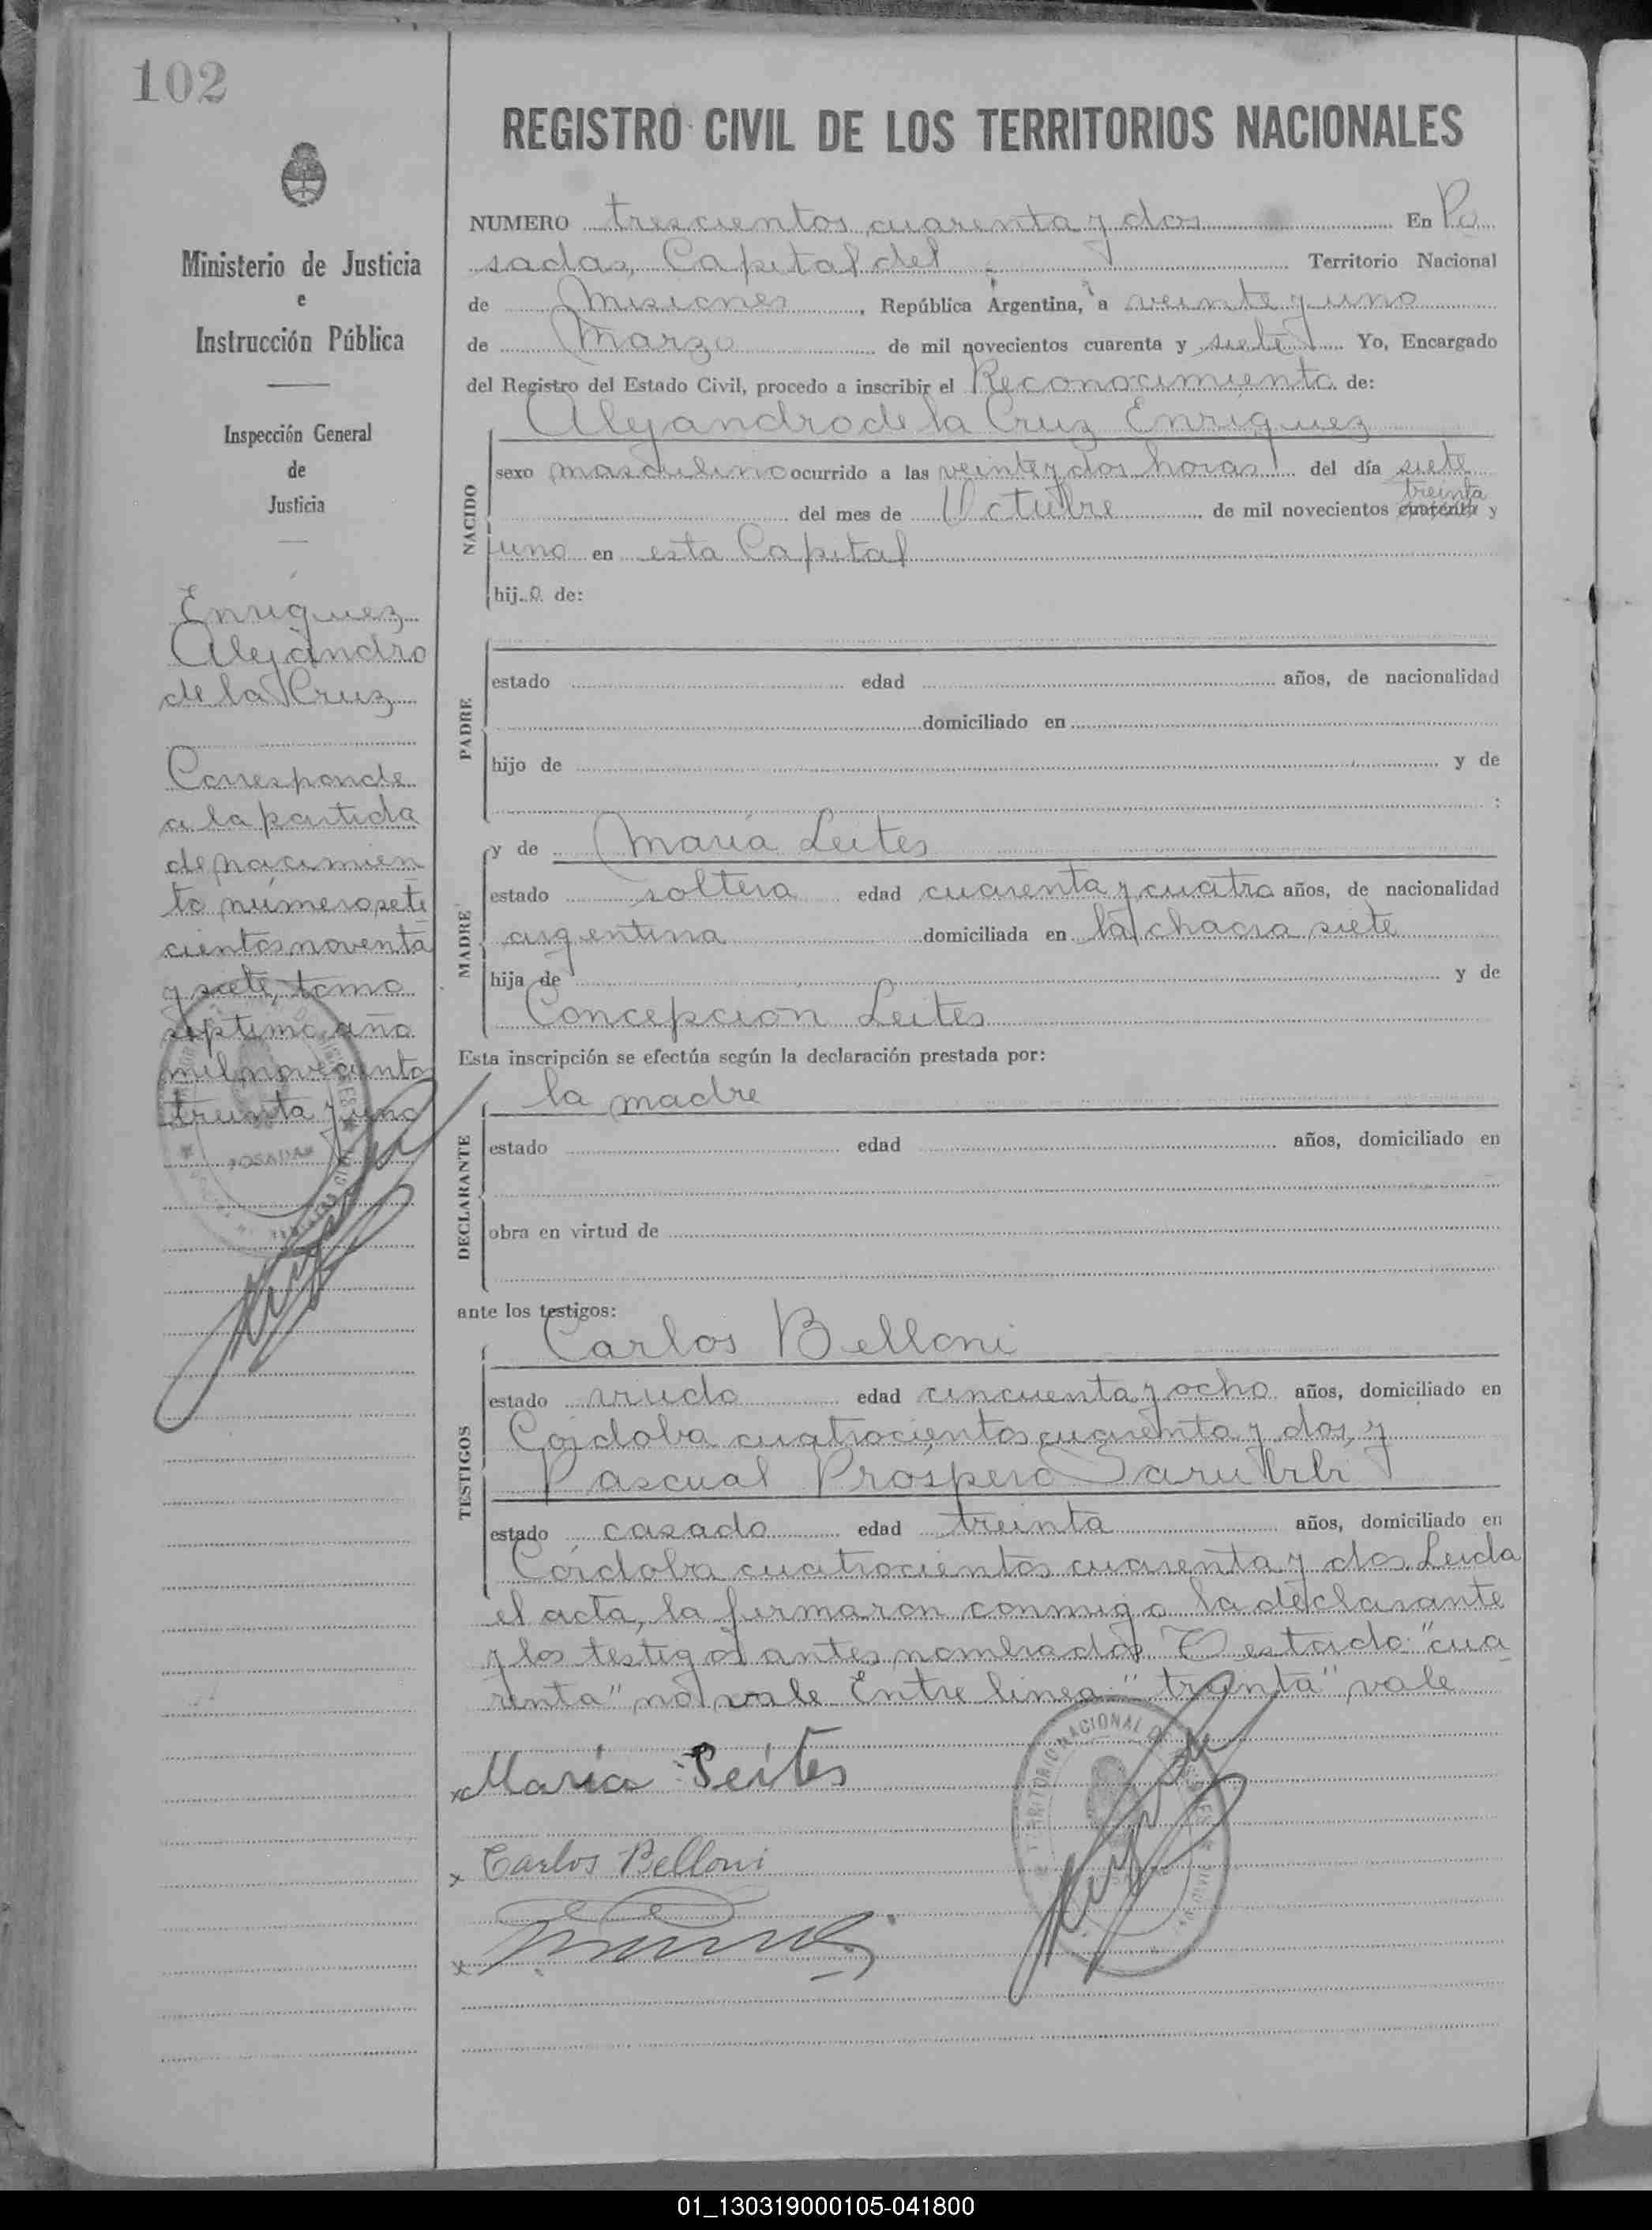 102
REGISTRO CIVIL DE LOS TERRITORIOS NACIONALES
Ministerio de Justicia
e
Instrucción Pública
Inspección General
de
Justicia
Enriquez
Alejandro
de la Cruz
Corresponde
a la partida
de nacimien
to número sete
cientos noventa
y siete, tomo
séptimo año
mil novecientos
treinta y uno
POSADAS
NUMERO trescientos cuarenta y dos En Po
sadas, Capital del Territorio Nacional
de Misiones, República Argentina, a veinte y uno
de Marzo de mil novecientos cuarenta y siete Yo, Encargado
del Registro del Estado Civil, procedo a inscribir el Reconocimiento de:
Alejandro de la Cruz Enriquez
NACIDO
sexo masculino ocurrido a las veinte y dos horas del día siete
treinta
del mes de Octubre de mil novecientos cuarenta y
uno en esta Capital
hijo de:
PADRE
estado edad años, de nacionalidad
domiciliado en
hijo de y de
:
MADRE
y de María Leites
estado soltera edad cuarenta y cuatro años, de nacionalidad
argentina domiciliada en la chacra siete
hija de y de
Concepción Leites
Esta inscripción se efectúa según la declaración prestada por:
DECLARANTE
la madre
estado edad años, domiciliado en
obra en virtud de
ante los testigos:
TESTIGOS
Carlos Belloni
estado viudo edad cincuenta y ocho años, domiciliado en
Córdoba cuatrocientos cuarenta y dos, y
Pascual Próspero
estado casado edad treinta años, domiciliado en
Córdoba cuatrocientos cuarenta y dos. Leida
el acta, la firmaron conmigo la declarante
y los testigos antes nombrados. Testado: "cua
renta" no vale. Entre linea: "treinta" vale
x María Leites
x Carlos Belloni
x
TERRITORIO NACIONAL DE MISIONES
01_130319000105-041800